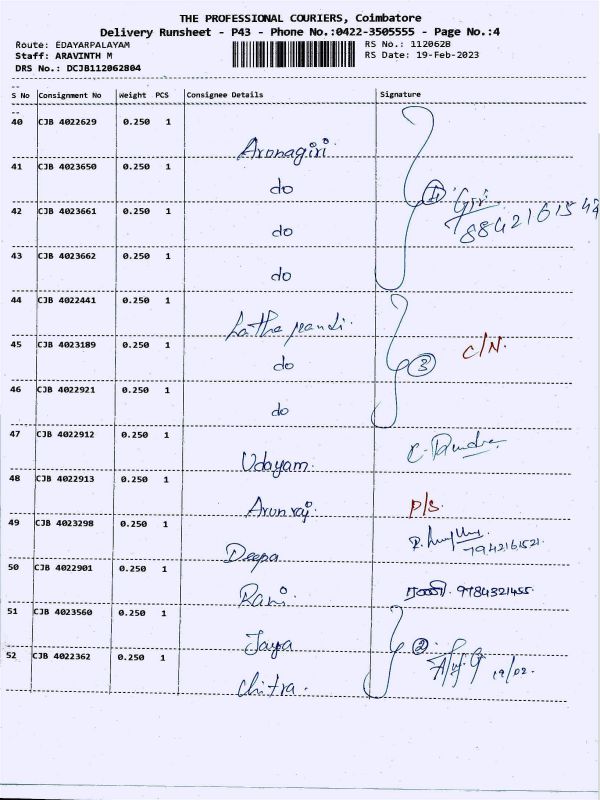 THE PROFESSIONAL COURIERS, Coimbatore
Delivery Runsheet - P43 - Phone No.:0422-3505555 - Page No.:4
Route: EDAYARPALAYAM RS No.: 1120628
Staff: ARAVINTH M RS Date: 19-Feb-2023
DRS No.: DCJB112062804
S No Consignment No Weight PCS Consignee Details Signature
40 CJB 4022629 0.250 1
Aronagiri
41 CJB 4023650 0.250 1
do
4 Giri
42 CJB 4023661 0.250 1
do
43 CJB 4023662 0.250 1
do
44 CJB 4022441 0.250 1
45 CJB 4023189 0.250 1
C/N.
do
3
46 CJB 4022921 0.250 1
do
47 CJB 4022912 0.250 1
Udayam.
48 CJB 4022913 0.250 1
Arunraj. P/S.
49 CJB 4023298 0.250 1
Deepa 7942161521.
50 CJB 4022901 0.250 1
Rani. 9784321455.
51 CJB 4023560 0.250 1
Jaya 2
52 CJB 4022362 0.250 1
19/02.
Chitra.